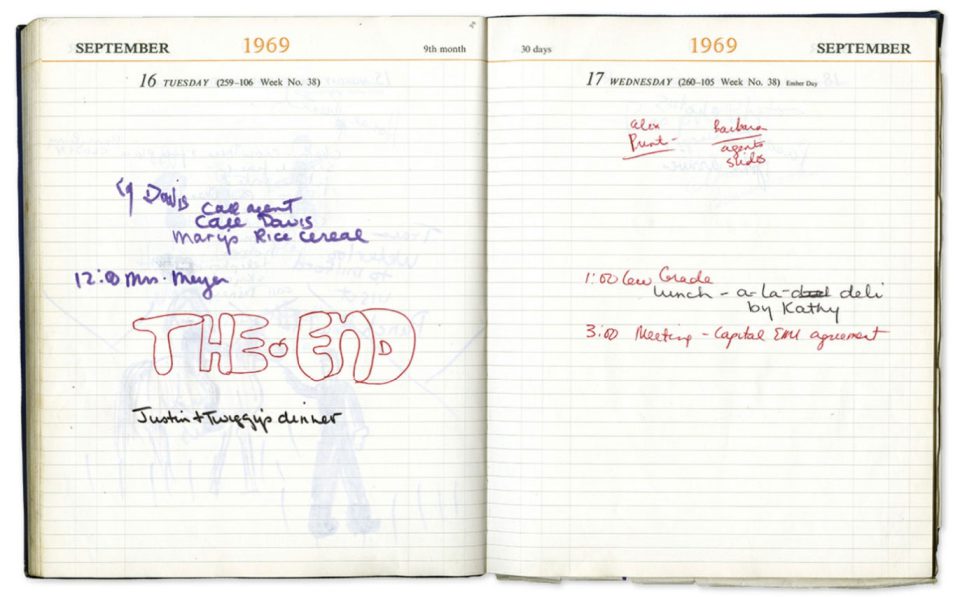 SEPTEMBER 1969 9th month
16 TUESDAY (259–106 Week No. 38)
Davis Call agent
Call Davis
Mary's Rice cereal
12:00 Mrs. Meyer
THE END
Justin + Twiggy's dinner
30 days 1969 SEPTEMBER
17 WEDNESDAY (260–105 Week No. 38) Ember Day
alex Barbara
Print - agents
slides
1:00 Lew Grade
lunch - a-la- deli
by Kathy
3:00 Meeting - Capital EMI agreement